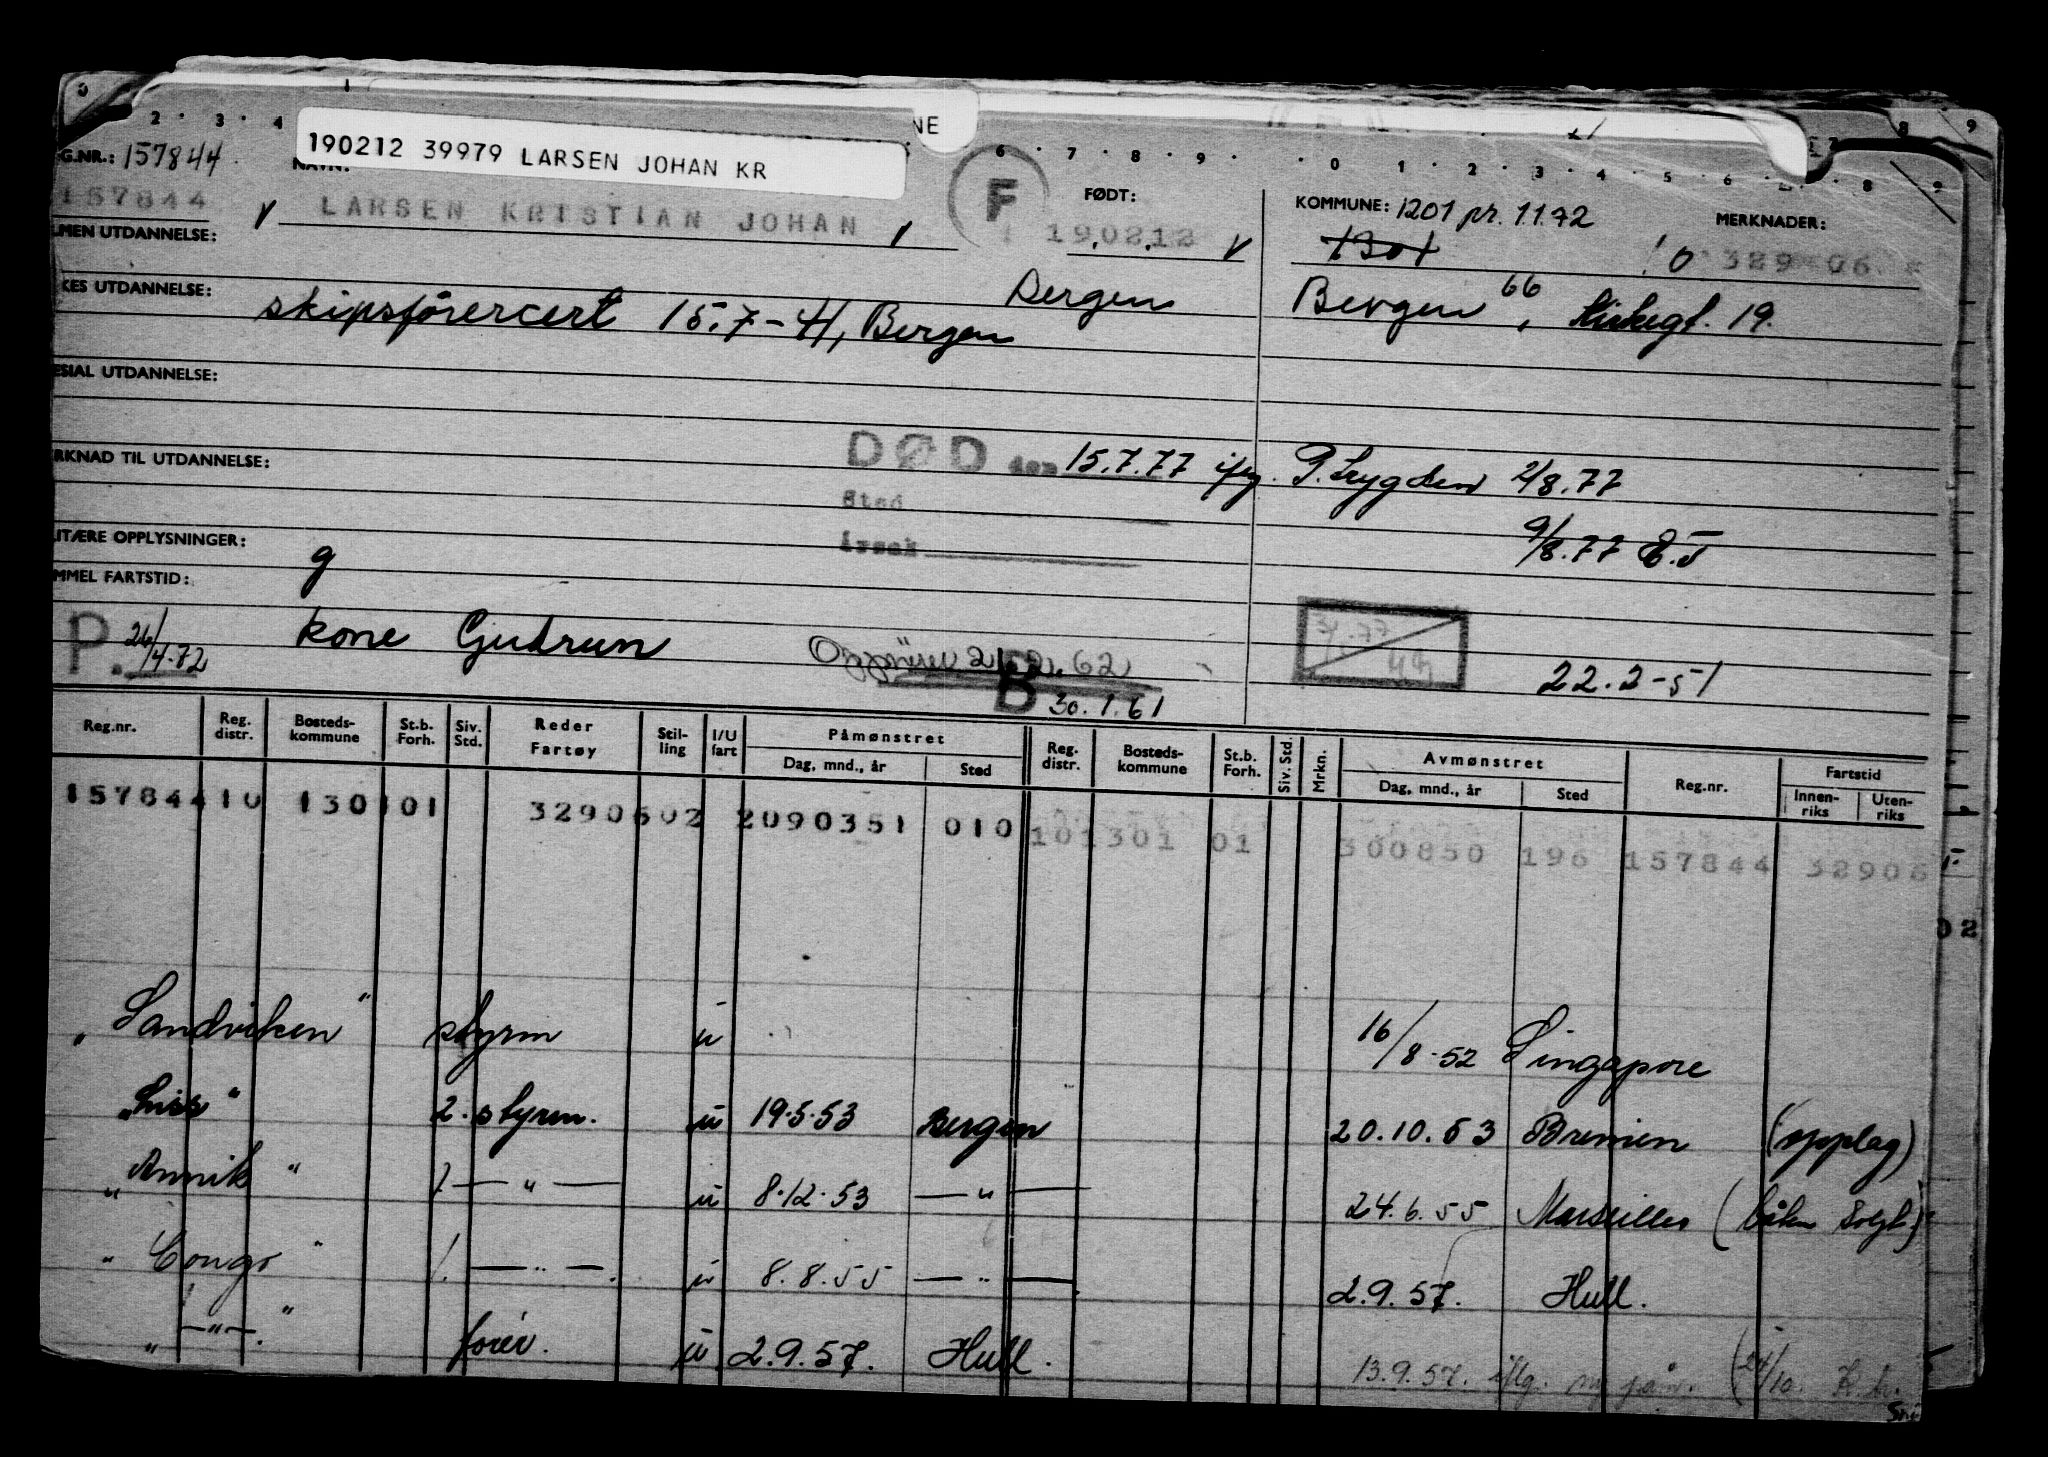 0 2 3 4 6 7 8 9 0 1 2 3 4 5 6 7 8 9
190212 39979 LARSEN JOHAN KR
NE
G.NR.: 157844
157844
NAVN:
LARSEN KRISTIAN JOHAN
F
FØDT:
190212
KOMMUNE: 1201 pr. 1.1.72
1301
MERKNADER:
389 06
LMEN UTDANNELSE:
KES UTDANNELSE:
skipsførercert 15.7-41, Bergen
Bergen
Bergen 66, Kirkegt. 19.
ESIAL UTDANNELSE:
RKNAD TIL UTDANNELSE:
DØD den 15.7.77 iflg. P.trygden 2/8.77
Sted
Årsak
9/8.77 E.T
LITÆRE OPPLYSNINGER:
g
MMEL FARTSTID:
P. 26/4.72
kone Gudrun
2.62
B 30.1.61
22.2-51
Reg.nr. Reg. distr. Bosteds-kommune St.b. Forh. Siv. Std. Reder Fartøy Stil-ling I/U fart Påmønstret Dag, mnd., år Sted Reg. distr. Bosteds-kommune St.b. Forh. Siv. Std. Mrkn. Avmønstret Dag, mnd., år Sted Reg.nr. Fartstid Innen-riks Uten-riks
157844 10 1301 01 3290602 2090351 010 101301 01 300850 196 157844 32906
02
"Sandviken" styrm u 16/8-52 Singapore
"Siss" 2. styrm. u 19.5.53 Bergen 20.10.53 Bremen (opplag)
"Annik" 1 — " — u 8.12.53 — " — 24.6.55 Marseilles (båten solgt.)
"Congo" 1. — " — . u 8.8.55 — " — 2.9.57. Hull.
" — " — . " fører. u 2.9.57. Hull. 13.9.57. iflg. ny påm. (24/10.